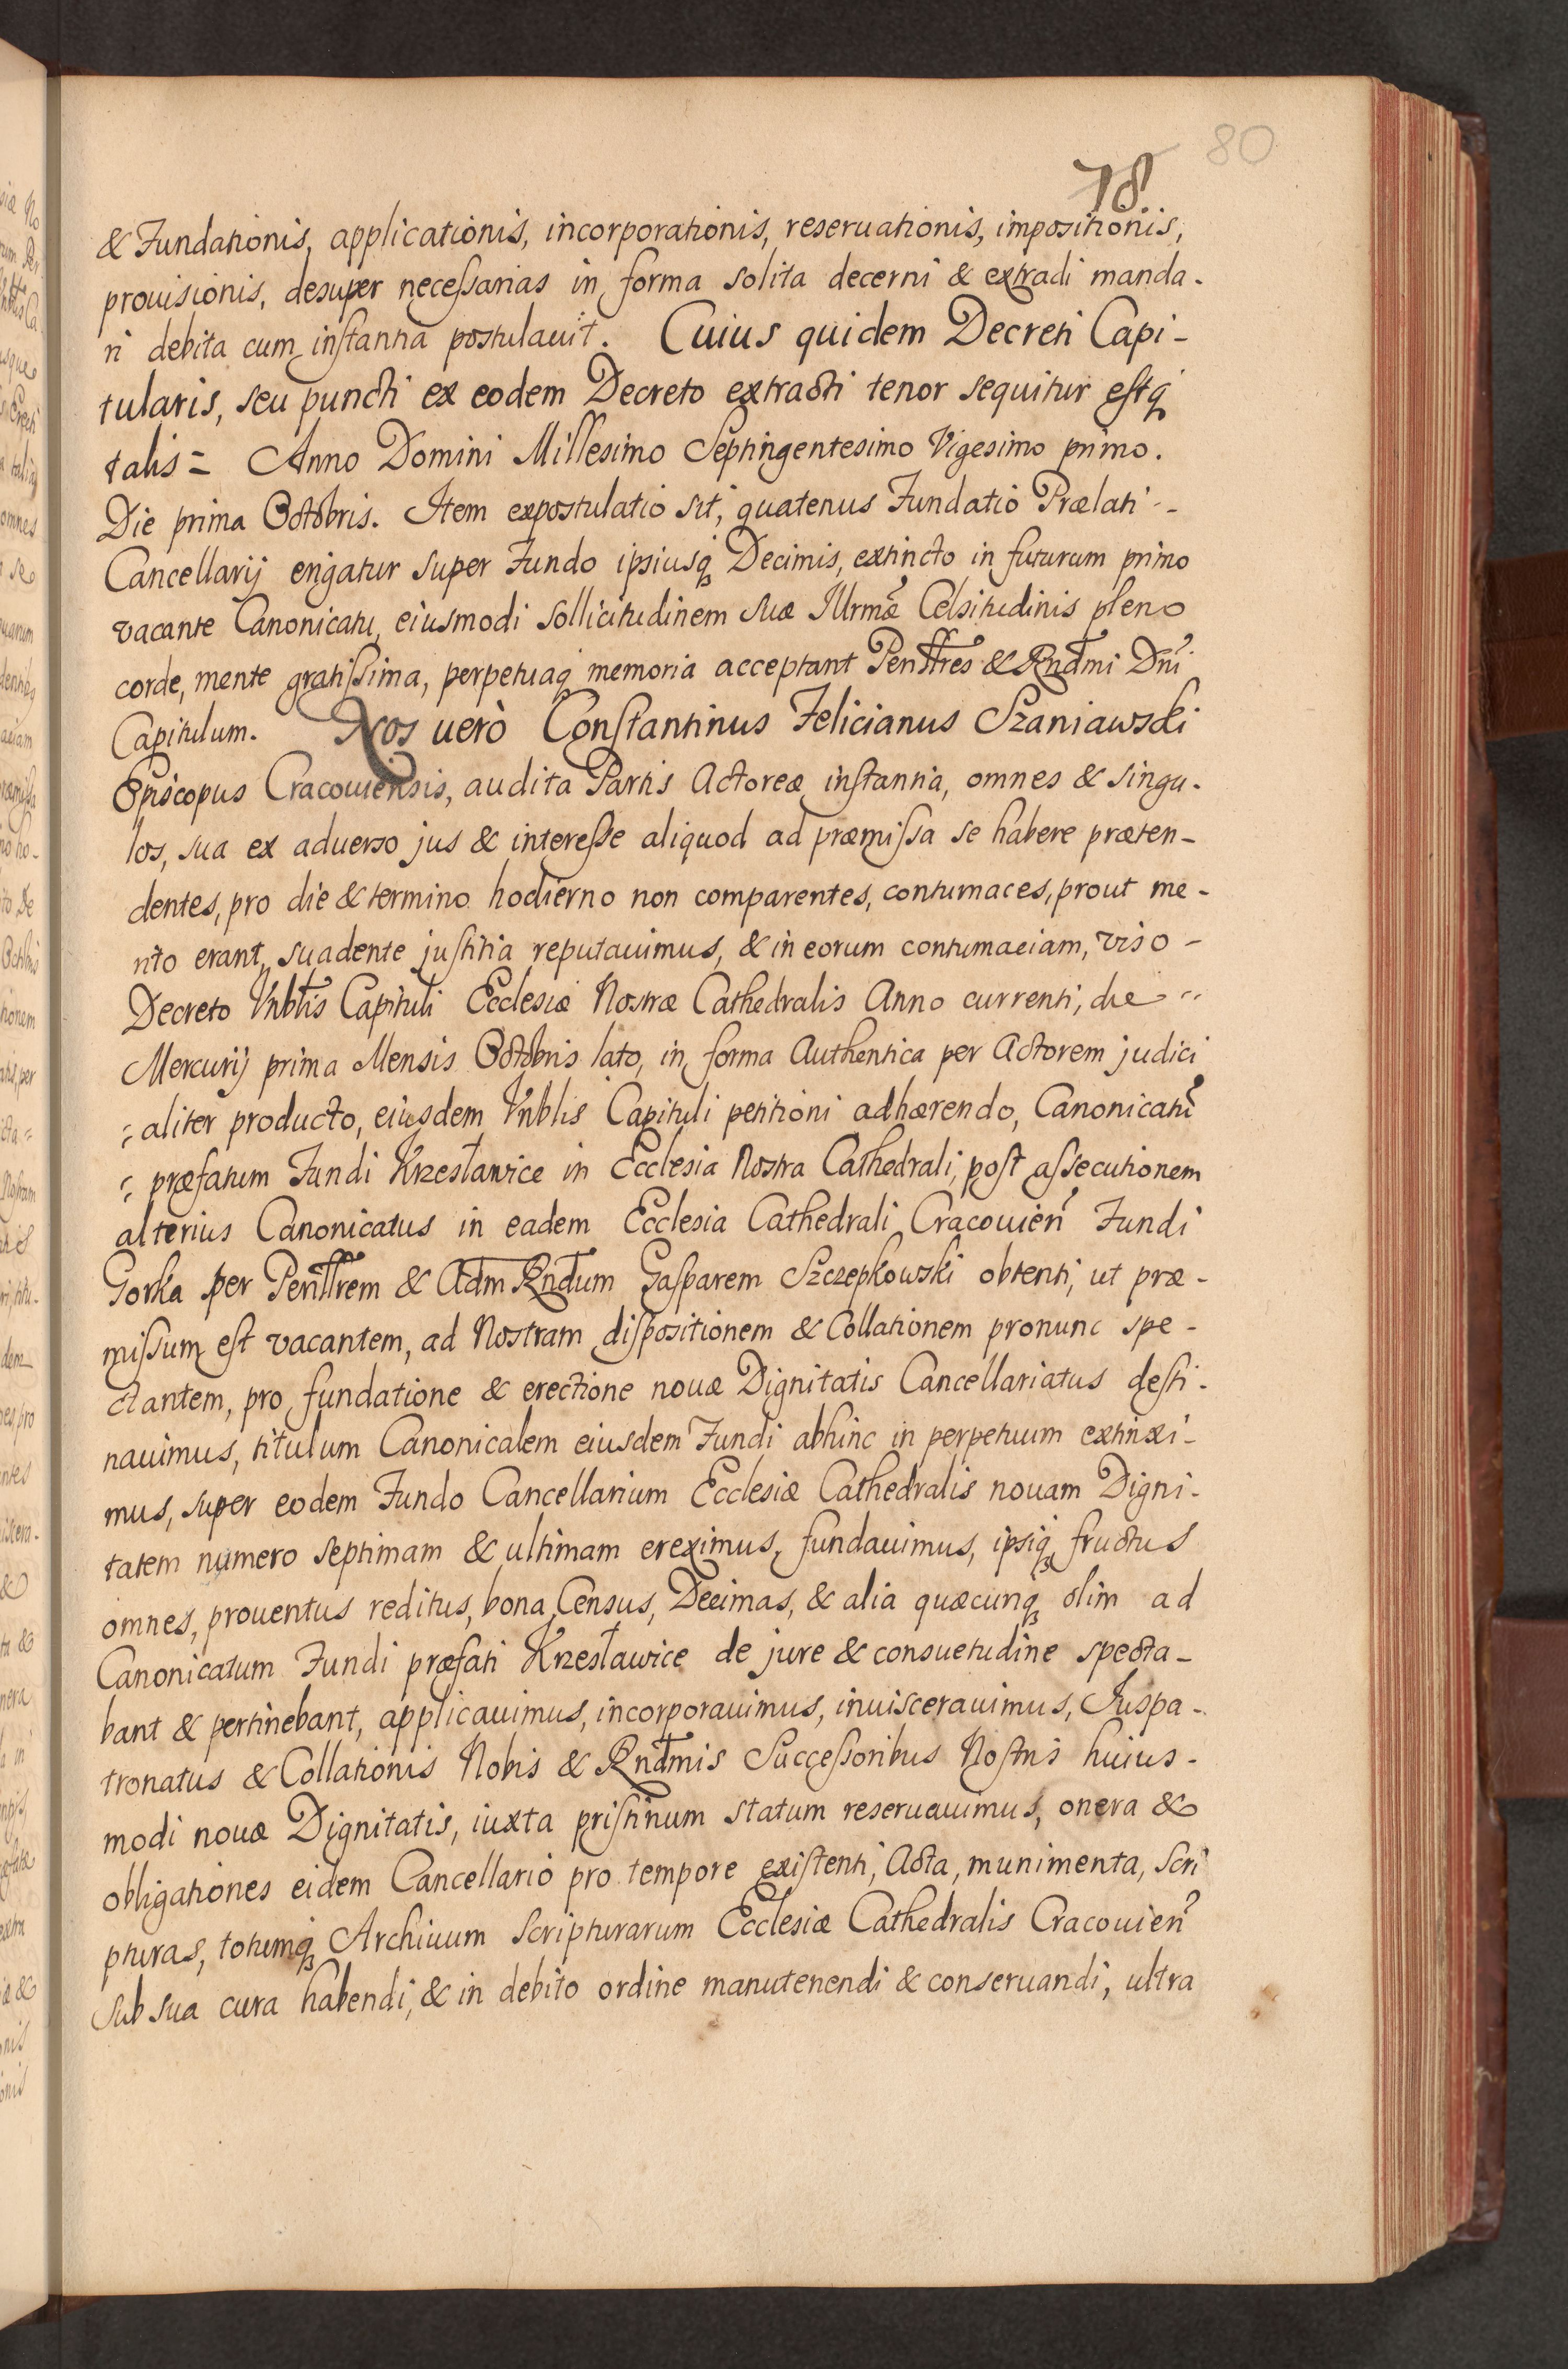 80
78
& Fundationis, applicationis, incorporationis, reseruationis, impositionis,
prouisionis, desuper necessarias in forma solita decerni & extradi manda-
ri debita cum instantia postulauit. Cuius quidem Decreti Capi-
tularis, seu puncti ex eodem Decreto extracti tenor sequitur estq
talis = Anno Domini Millesimo Septingentesimo Vigesimo primo.
Die prima Octobris. Item expostulatio sit, quatenus Fundatio Prælati
Cancellarij erigatur super Fundo ipsiusq Decimis, extincto in futurum primo
vacante Canonicatu, eiusmodi sollicitudinem suæ Illrmæ Celsitudinis pleno
corde, mente gratissima, perpetuaq memoria acceptant Penlltres & Rndmi Dni
Capitulum. Nos uerò Constantinus Felicianus Szaniawski
Episcopus Cracouiensis, audita Partis Actoreæ instantia, omnes & singu-
los, sua ex aduerso jus & interesse aliquod ad præmissa se habere præten-
dentes, pro die & termino hodierno non comparentes, contumaces, prout me-
rito erant, suadente justitia reputauimus, & in eorum contumaciam, viso -
Decreto Vnblis Capituli Ecclesiæ Nostræ Cathedralis Anno currenti, die
Mercurij prima Mensis Octobris lato, in forma Authentica per Actorem judici
aliter producto, eiusdem Vnblis Capituli petitioni adhærendo, Canonicatũ
præfatum Fundi Krzesławice in Ecclesia Nostra Cathedrali, post assecutionem
alterius Canonicatus in eadem Ecclesia Cathedrali Cracouien Fundi
Gorka per Penlltrem & Adm Rndum Gasparem Szczepkowski obtenti, ut præ-
missum est vacantem, ad Nostram dispositionem & Collationem pronunc spe-
ctantem, pro fundatione & erectione nouæ Dignitatis Cancellariatus desti-
nauimus, titulum Canonicalem eiusdem Fundi abhinc in perpetuum extinxi-
mus, super eodem Fundo Cancellarium Ecclesiæ Cathedralis nouam Digni-
tatem numero septimam & ultimam ereximus, fundauimus, ipsiq fructus
omnes, prouentus reditus, bona, Census, Decimas, & alia quæcunq olim ad
Canonicatum Fundi præfati Krzesławice de jure & consuetudine specta-
bant & pertinebant, applicauimus, incorporauimus, inuiscerauimus, Juspa-
tronatus & Collationis Nobis & Rndmis Successoribus Nostris huius-
modi nouæ Dignitatis, iuxta pristinum statum reseruauimus, onera &
obligationes eidem Cancellario pro tempore existenti, Acta, munimenta, scri
pturas, totumq Archiuum Scripturarum Ecclesiæ Cathedralis Cracouien
sub sua cura habendi, & in debito ordine manutenendi & conseruandi, ultra